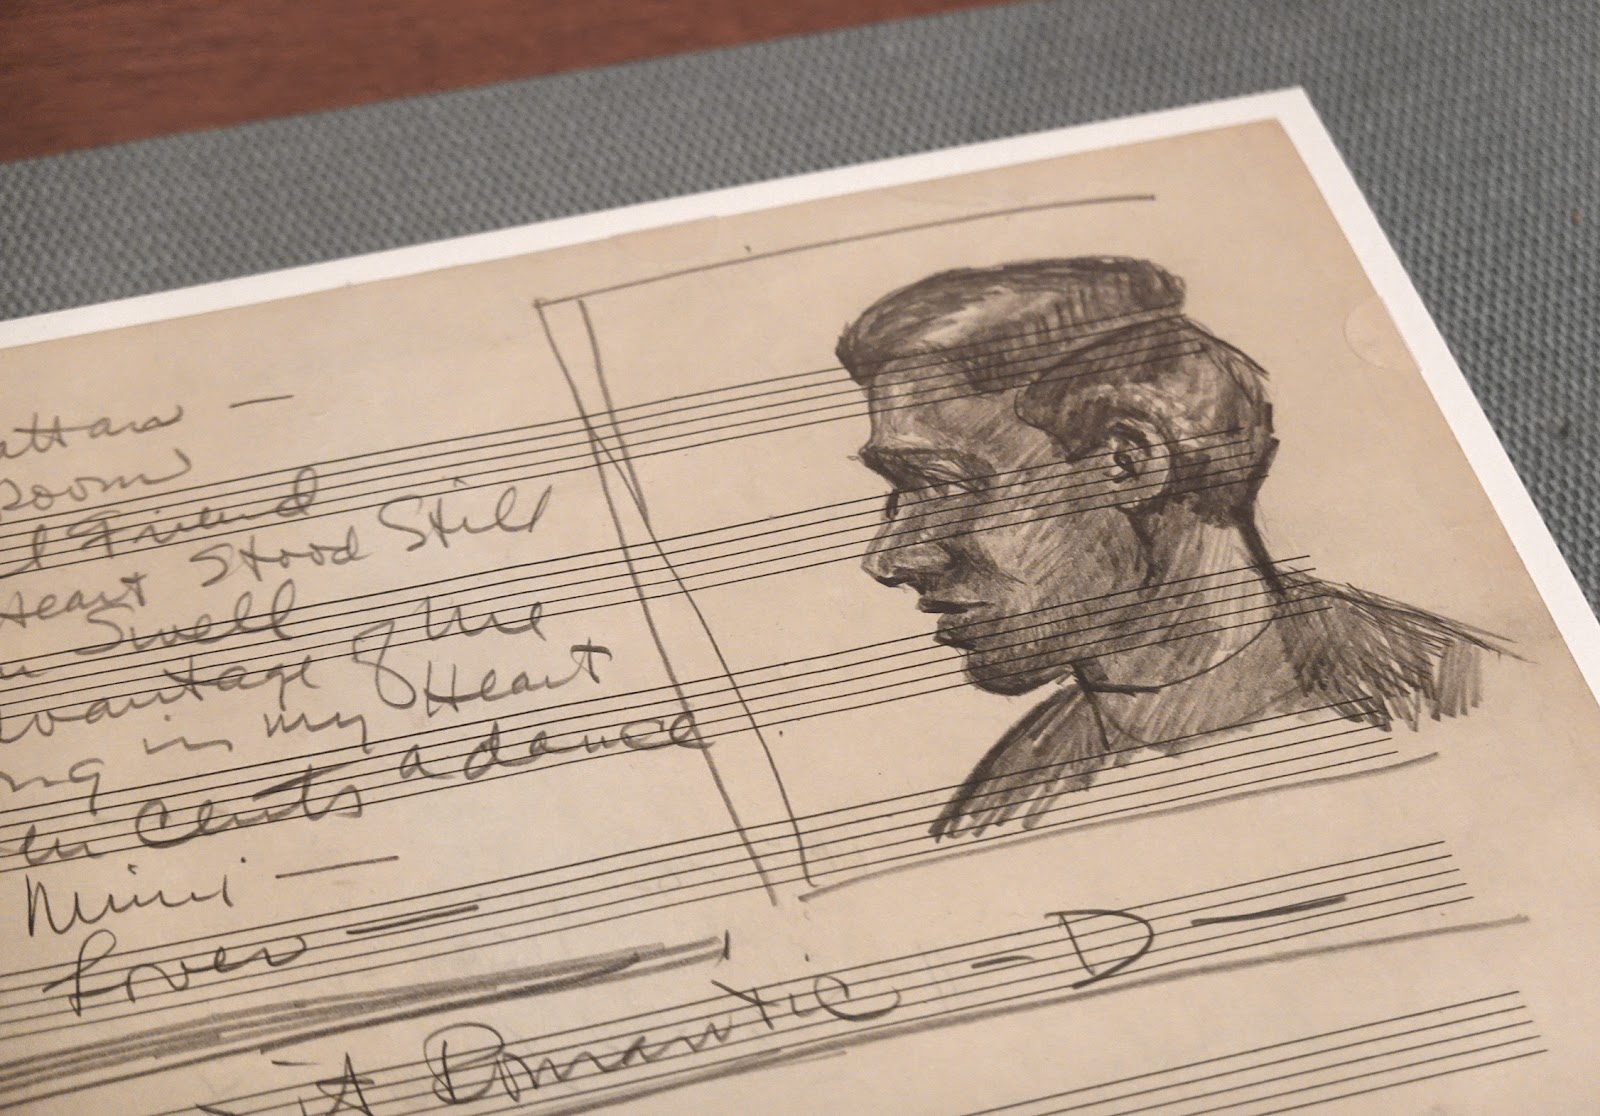 attan —
Room
l Friend
Heart Stood Still
Swell
dvantage of me
ng in my Heart
en Cents a dance
Mimi —
Lover —
it Romantic - D —